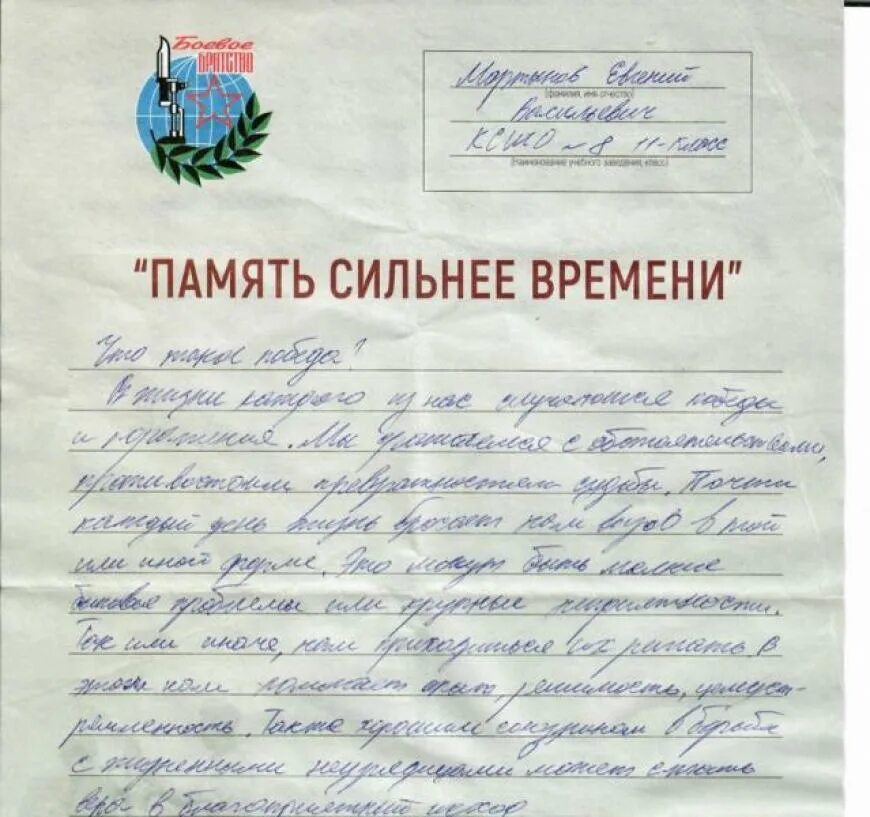 Боевое
БРАТСТВО
Мартынов Евгений
(фамилия, имя отчество)
Васильевич
КСШО №8 11-класс
(Наименование учебного заведения, класс)
“ПАМЯТЬ СИЛЬНЕЕ ВРЕМЕНИ”
Что такое победа?
В жизни каждого из нас случаются победы
и поражения. Мы сражаемся с обстоятельствами,
противостоим превратностям судьбы. Почти
каждый день жизнь бросает нам вызов в той
или иной форме. Это могут быть мелкие
бытовые проблемы или крупные неприятности.
Так или иначе, нам приходиться их решать. В
этом нам помогает опыт, решимость, целеуст-
ремленность. Также хорошим союзником в борьбе
с жизненными неурядицами может стать
вера в благоприятный исход